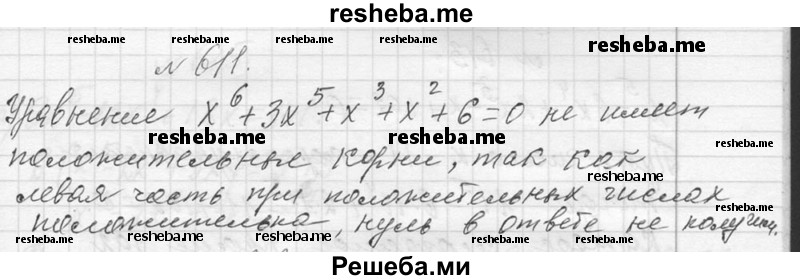 resheba.me
resheba.me resheba.me
№ 611.
resheba.me
Уравнение x⁶+3x⁵+x³+x²+6=0 не имеет
resheba.me resheba.me
положительные корни, так как
resheba.me
левая часть при положительных числах
resheba.me resheba.me
положительна, нуль в ответе не получим.
resheba.me resheba.me resheba.me
Решеба.ми